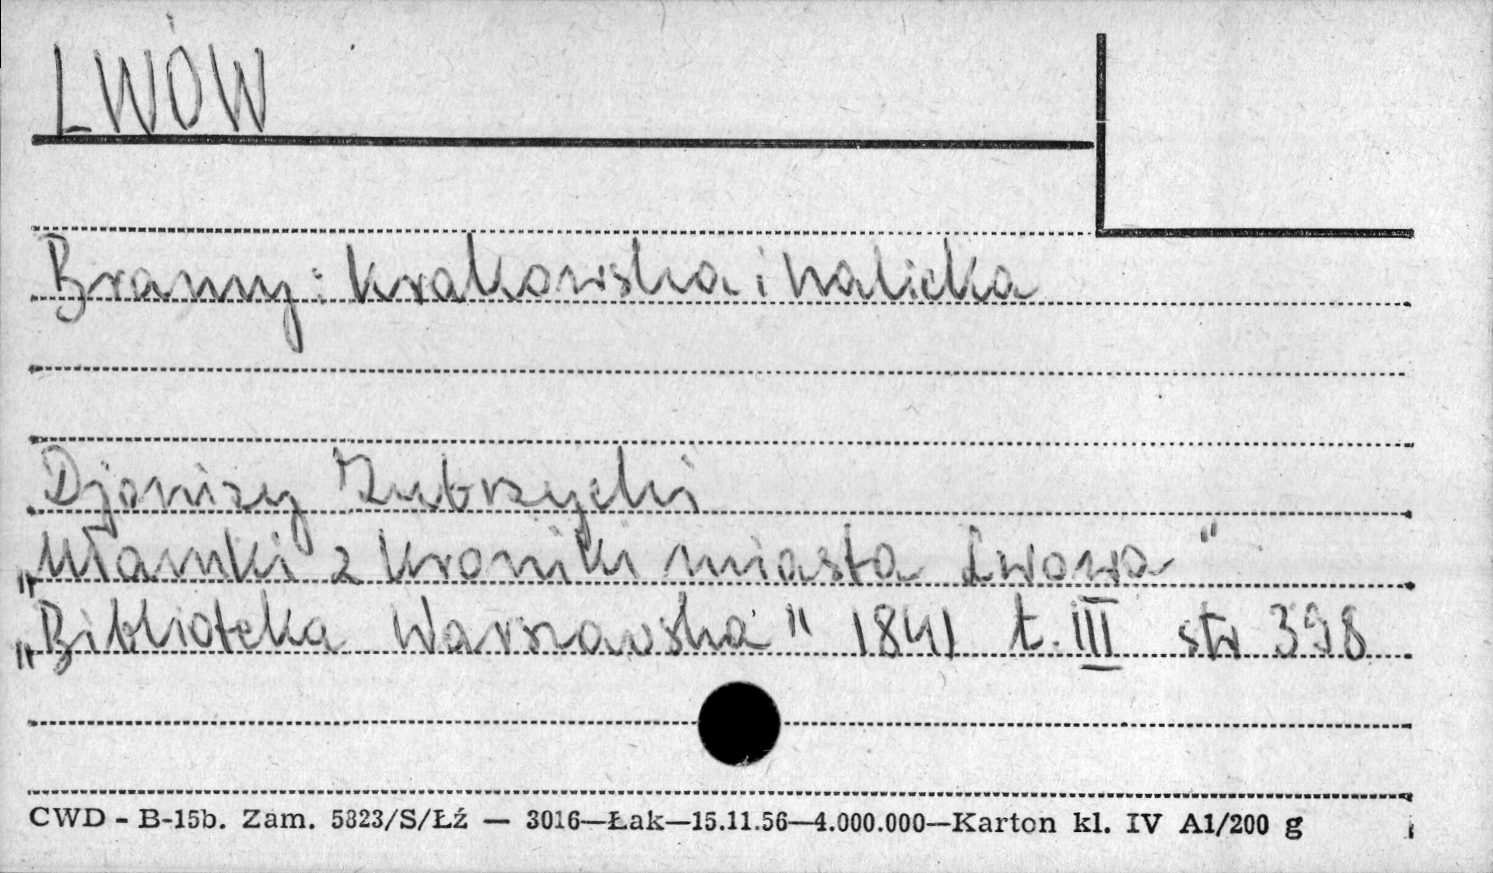 LWÓW
Bramy: Krakowska i halicka
Djonizy Zubrzycki
„Ułamki z kroniki miasta Lwowa"
„Biblioteka Warszawska" 1841 t. III str 398
CWD - B-15b. Zam. 5823/S/Łź — 3016—Łak—15.11.56—4.000.000—Karton kl. IV A1/200 g